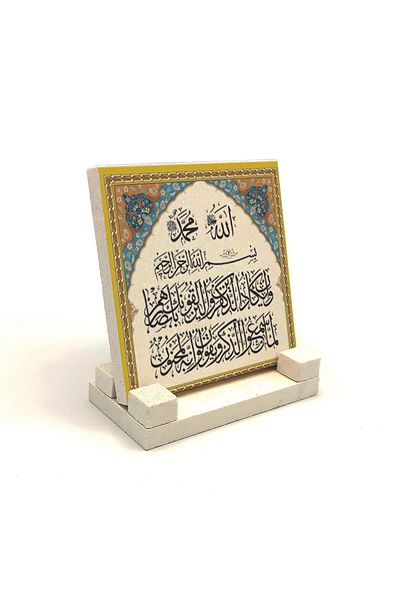 الله محمد
بسم الله الرحمن الرحيم
وان يكاد الذين كفروا ليزلقونك بابصارهم
لما سمعوا الذكر ويقولون انه لمجنون